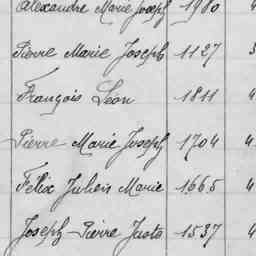 Alexandre Marie Joseph 1980 4
Pierre Marie Joseph 1127 3
François Léon 1811 4
Pierre Marie Joseph 1704 4
Félix Julien Marie 1665 4
Joseph Pierre Juste 1537 4